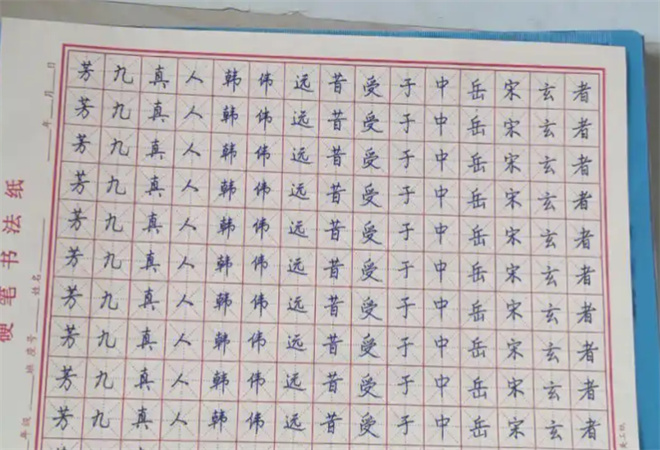 芳九真人韩伟远昔受于中岳宋玄者
芳九真人韩伟远昔受于中岳宋玄者
芳九真人韩伟远昔受于中岳宋玄者
芳九真人韩伟远昔受于中岳宋玄者
芳九真人韩伟远昔受于中岳宋玄者
芳九真人韩伟远昔受于中岳宋玄者
芳九真人韩伟远昔受于中岳宋玄者
芳九真人韩伟远昔受于中岳宋玄者
芳九真人韩伟远昔受于中岳宋玄者
芳九真人韩伟远昔受于中岳宋玄者
硬笔书法纸
年级 班 座号 姓名 年 月 日